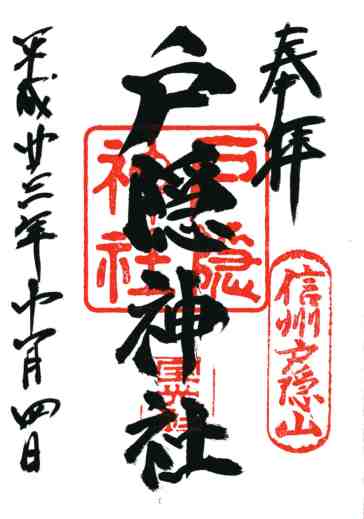 奉拝
信州戸隠山
戸隠神社
戸隠
神社
平成廿三年十一月四日